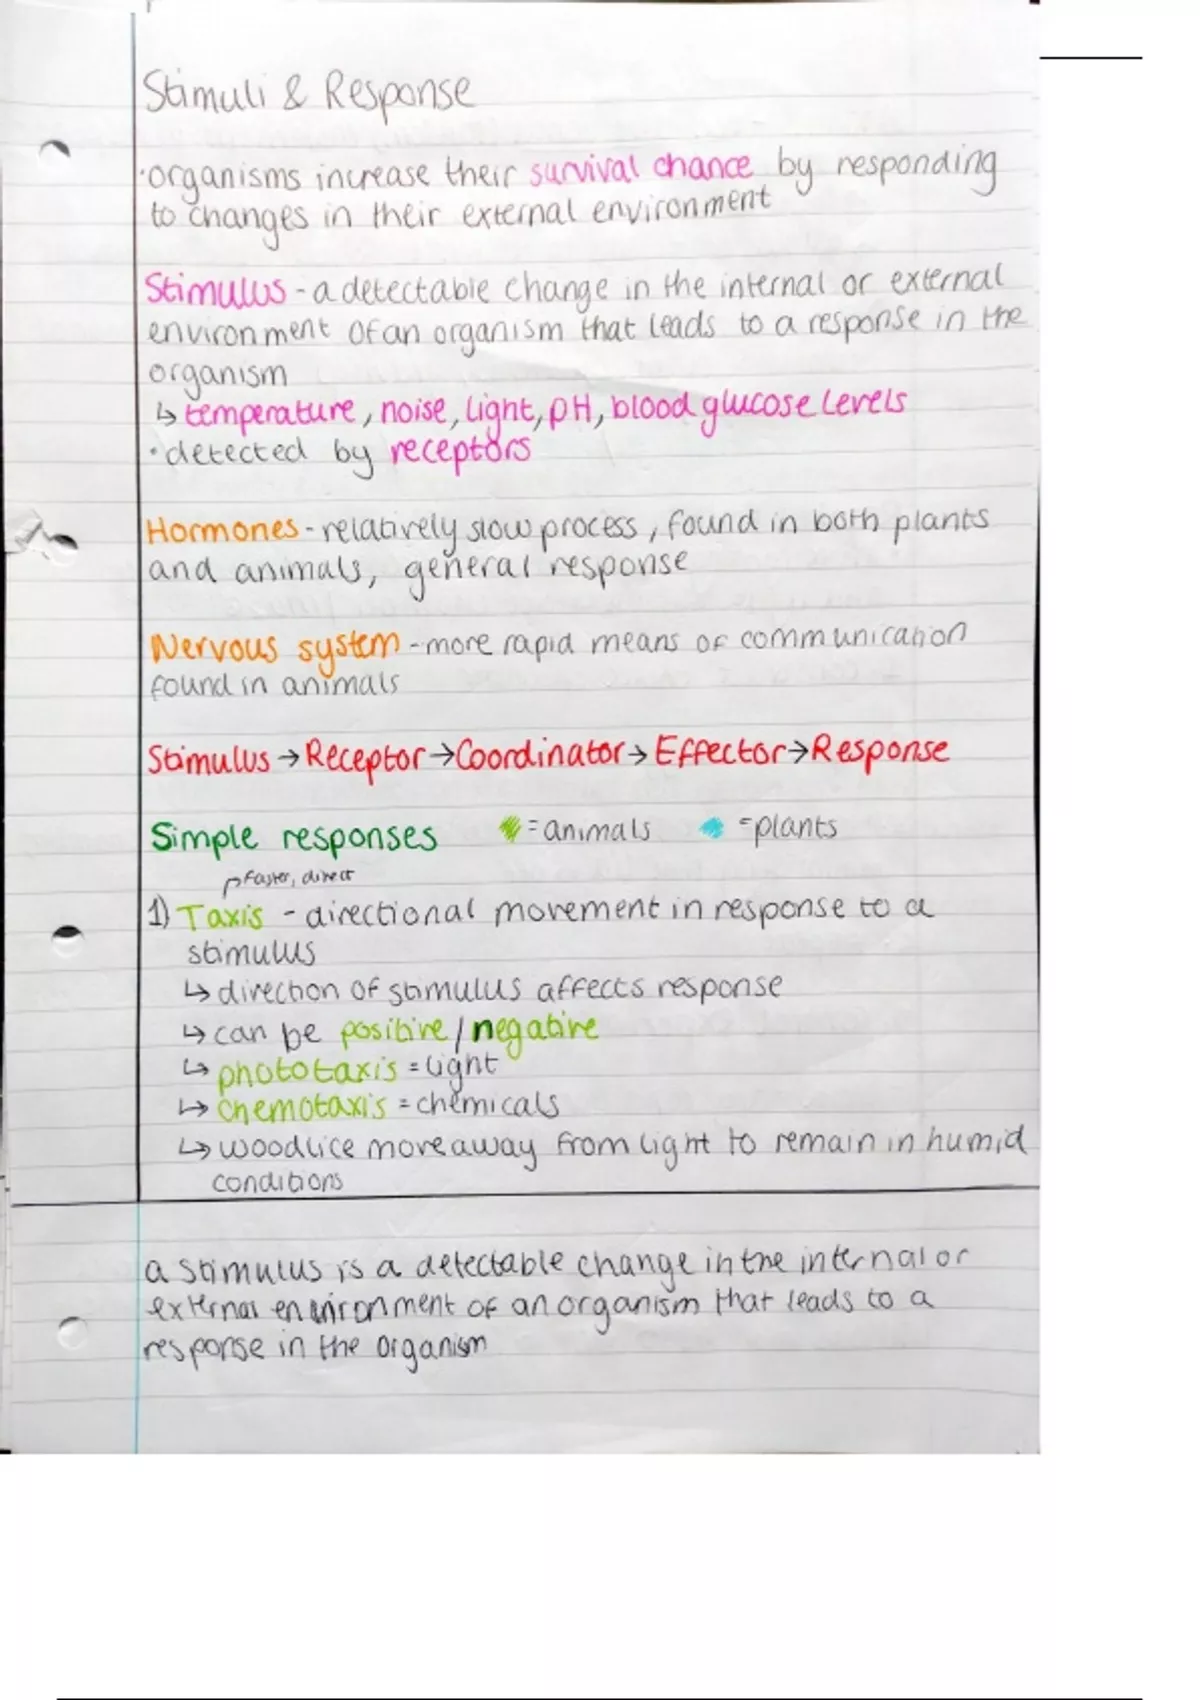 Stimuli & Response
·organisms increase their survival chance by responding
to changes in their external environment
Stimulus - a detectable change in the internal or external
environment of an organism that leads to a response in the
organism
↳ temperature, noise, light, pH, blood glucose levels
· detected by receptors
Hormones - relatively slow process, found in both plants
and animals, general response
Nervous system - more rapid means of communication
found in animals
Stimulus → Receptor → Coordinator → Effector → Response
Simple responses = animals = plants
faster, direct
1) Taxis - directional movement in response to a
stimulus
↳ direction of stimulus affects response
↳ can be positive / negative
↳ phototaxis = light
↳ chemotaxis = chemicals
↳ woodlice move away from light to remain in humid
conditions
a stimulus is a detectable change in the internal or
external environment of an organism that leads to a
response in the organism